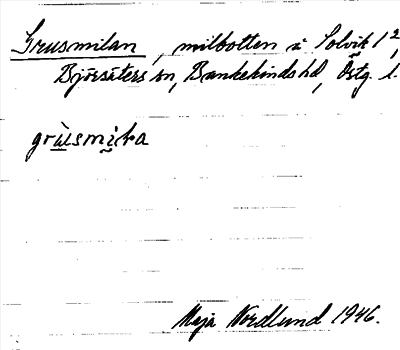 Grusmilan, milbotten i Solvik 1²,
Björsäters sn, Bankekinds hd, Östg. l.
grùsmila
Maja Nordlund 1946.